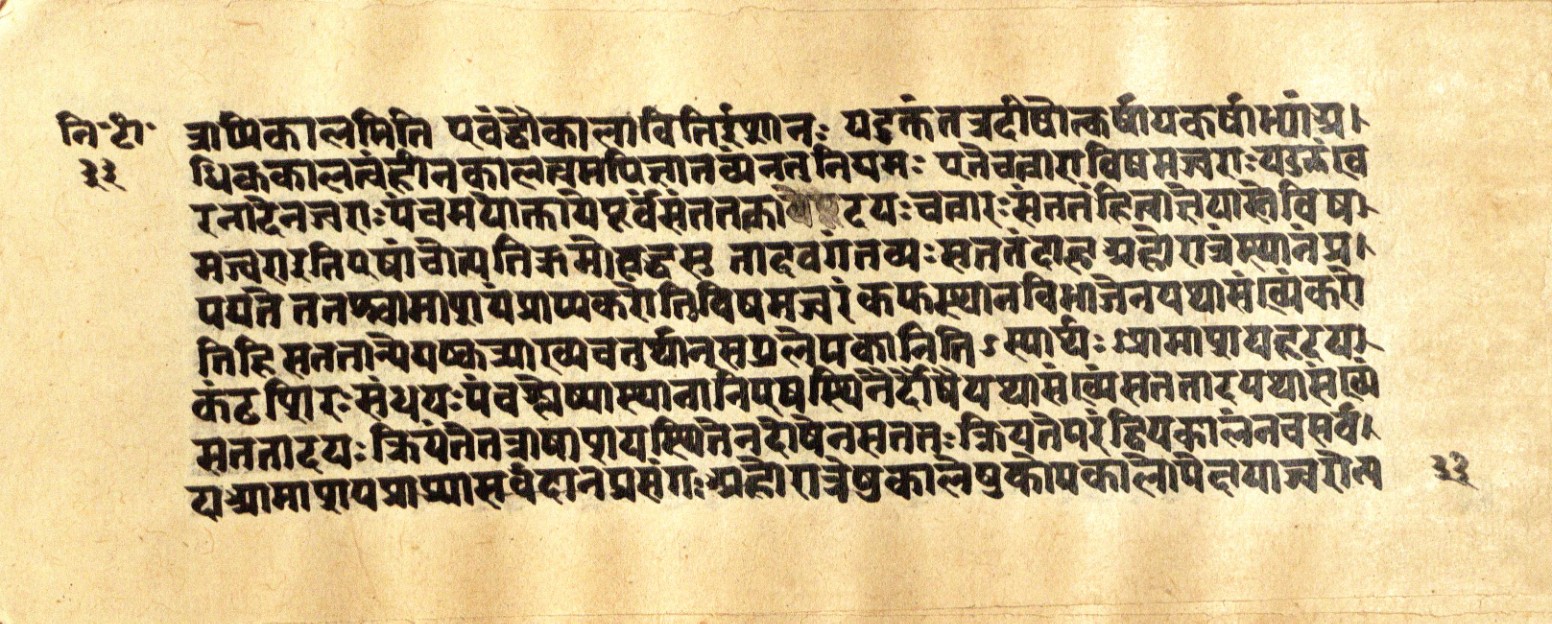 नि·टी·
३३
त्रापिकालमिति एवंद्वौकालाविति इंशानः यदुक्तंतत्रदीषोत्कर्षापकर्षाभ्यांअ।
धिककालत्वंहीनकालत्वमपिज्ञातव्यंनतुनियमः एतेचत्वारोविषमज्वराः यदुक्तंखि
रनादेनज्वराःपंचमयोक्तायेपूर्वंसंततका दयःचत्वारःसंततंहित्वाज्ञेयास्तेविषा
मज्वराइतिएषांचोत्पतिक्रमोवृद्धसु तादवगंतव्यःसततंदाह अहोरात्रंस्थानंप्र।
पर्यते ततश्चामाशयंप्राप्यकरोतिविषमज्वरं कफस्थानविभागेनयथासंख्यंकरो
तिहि सततान्येद्युष्कत्र्याख्यचतुर्थान्सप्रलेपकानिति ऽस्यार्थः आमाशयहृदया
कंठशिरःसंधयःपंचश्लेष्मास्थानानिएषुस्थितैर्दोषैयथासंख्यंसततादयथासंख्यं
सततादयः क्रियंतेतत्राषाशयस्थितेनदोषेनसततःक्रियतेपरंद्वियकालंनचसर्व।
दाआमाशयप्राप्त्यासर्वदानप्रसंगःअहोरात्रेषुकालेषुकोपकालापेक्षयाज्वरोत्प
३३